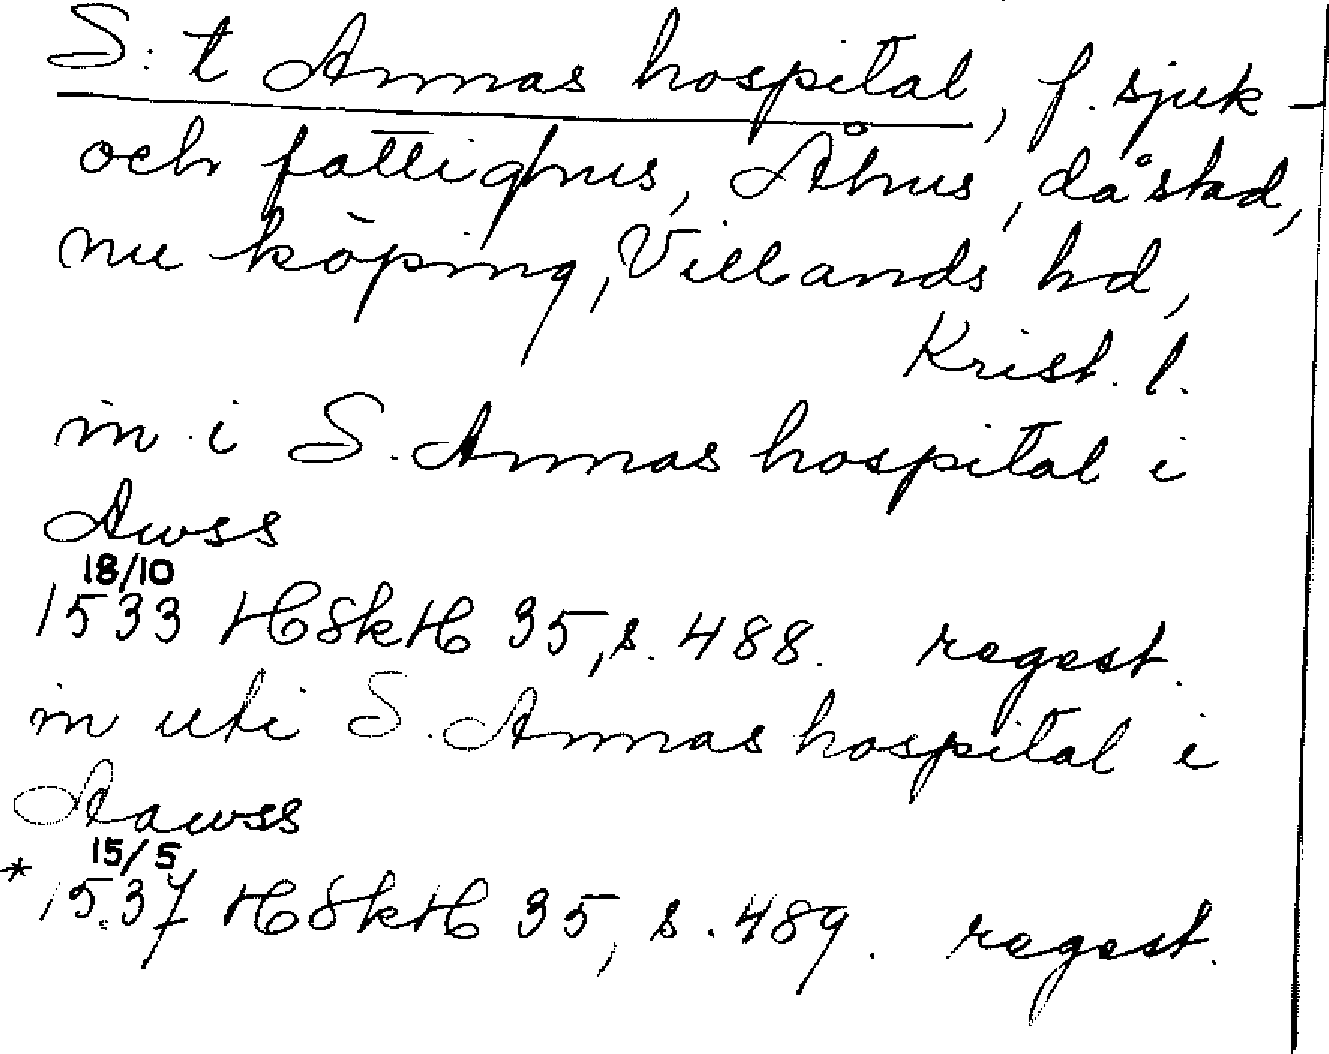 S:t Annas hospital, f. sjuk-
och fattighus, Åhus, då stad,
nu köping, Villands hd,
Krist. l.
in i S. Annas hospital i
Awss
18/10
1533 HSkH 35, s. 488. regest.
in uti S. Annas hospital i
Aawss
15/5
* 1537 HSkH 35, s. 489. regest.